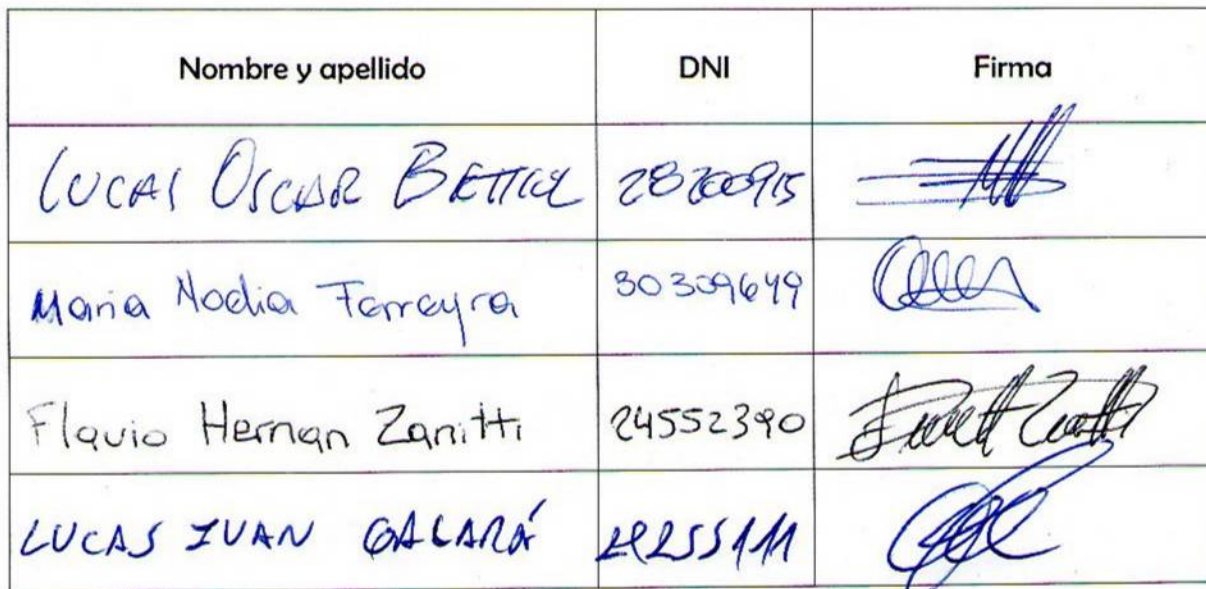 Nombre y apellido DNI Firma
LUCAS OSCAR BETTIOL 28200915
Maria Nadia Ferreyra 30309649
Flavio Hernan Zanitti 24552390
LUCAS IVAN GALARÁ